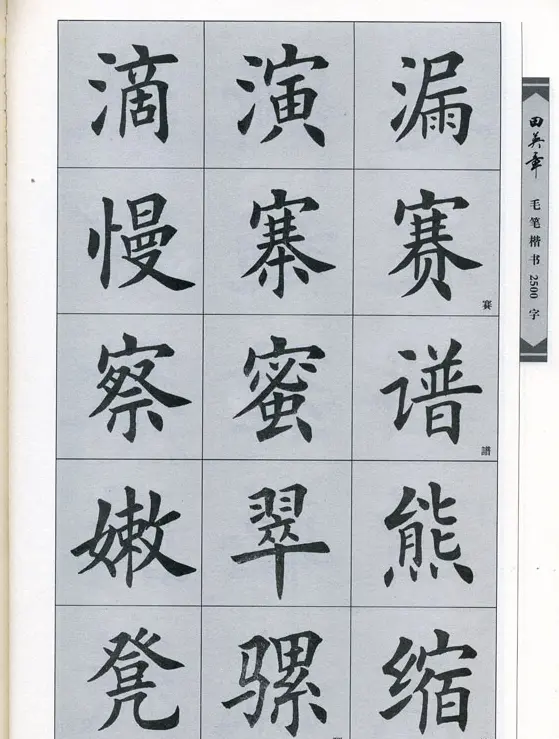 滴 演 漏
慢 寨 赛
賽
察 蜜 谱
譜
嫩 翠 熊
凳 骡 缩
田英章
毛笔楷书2500字